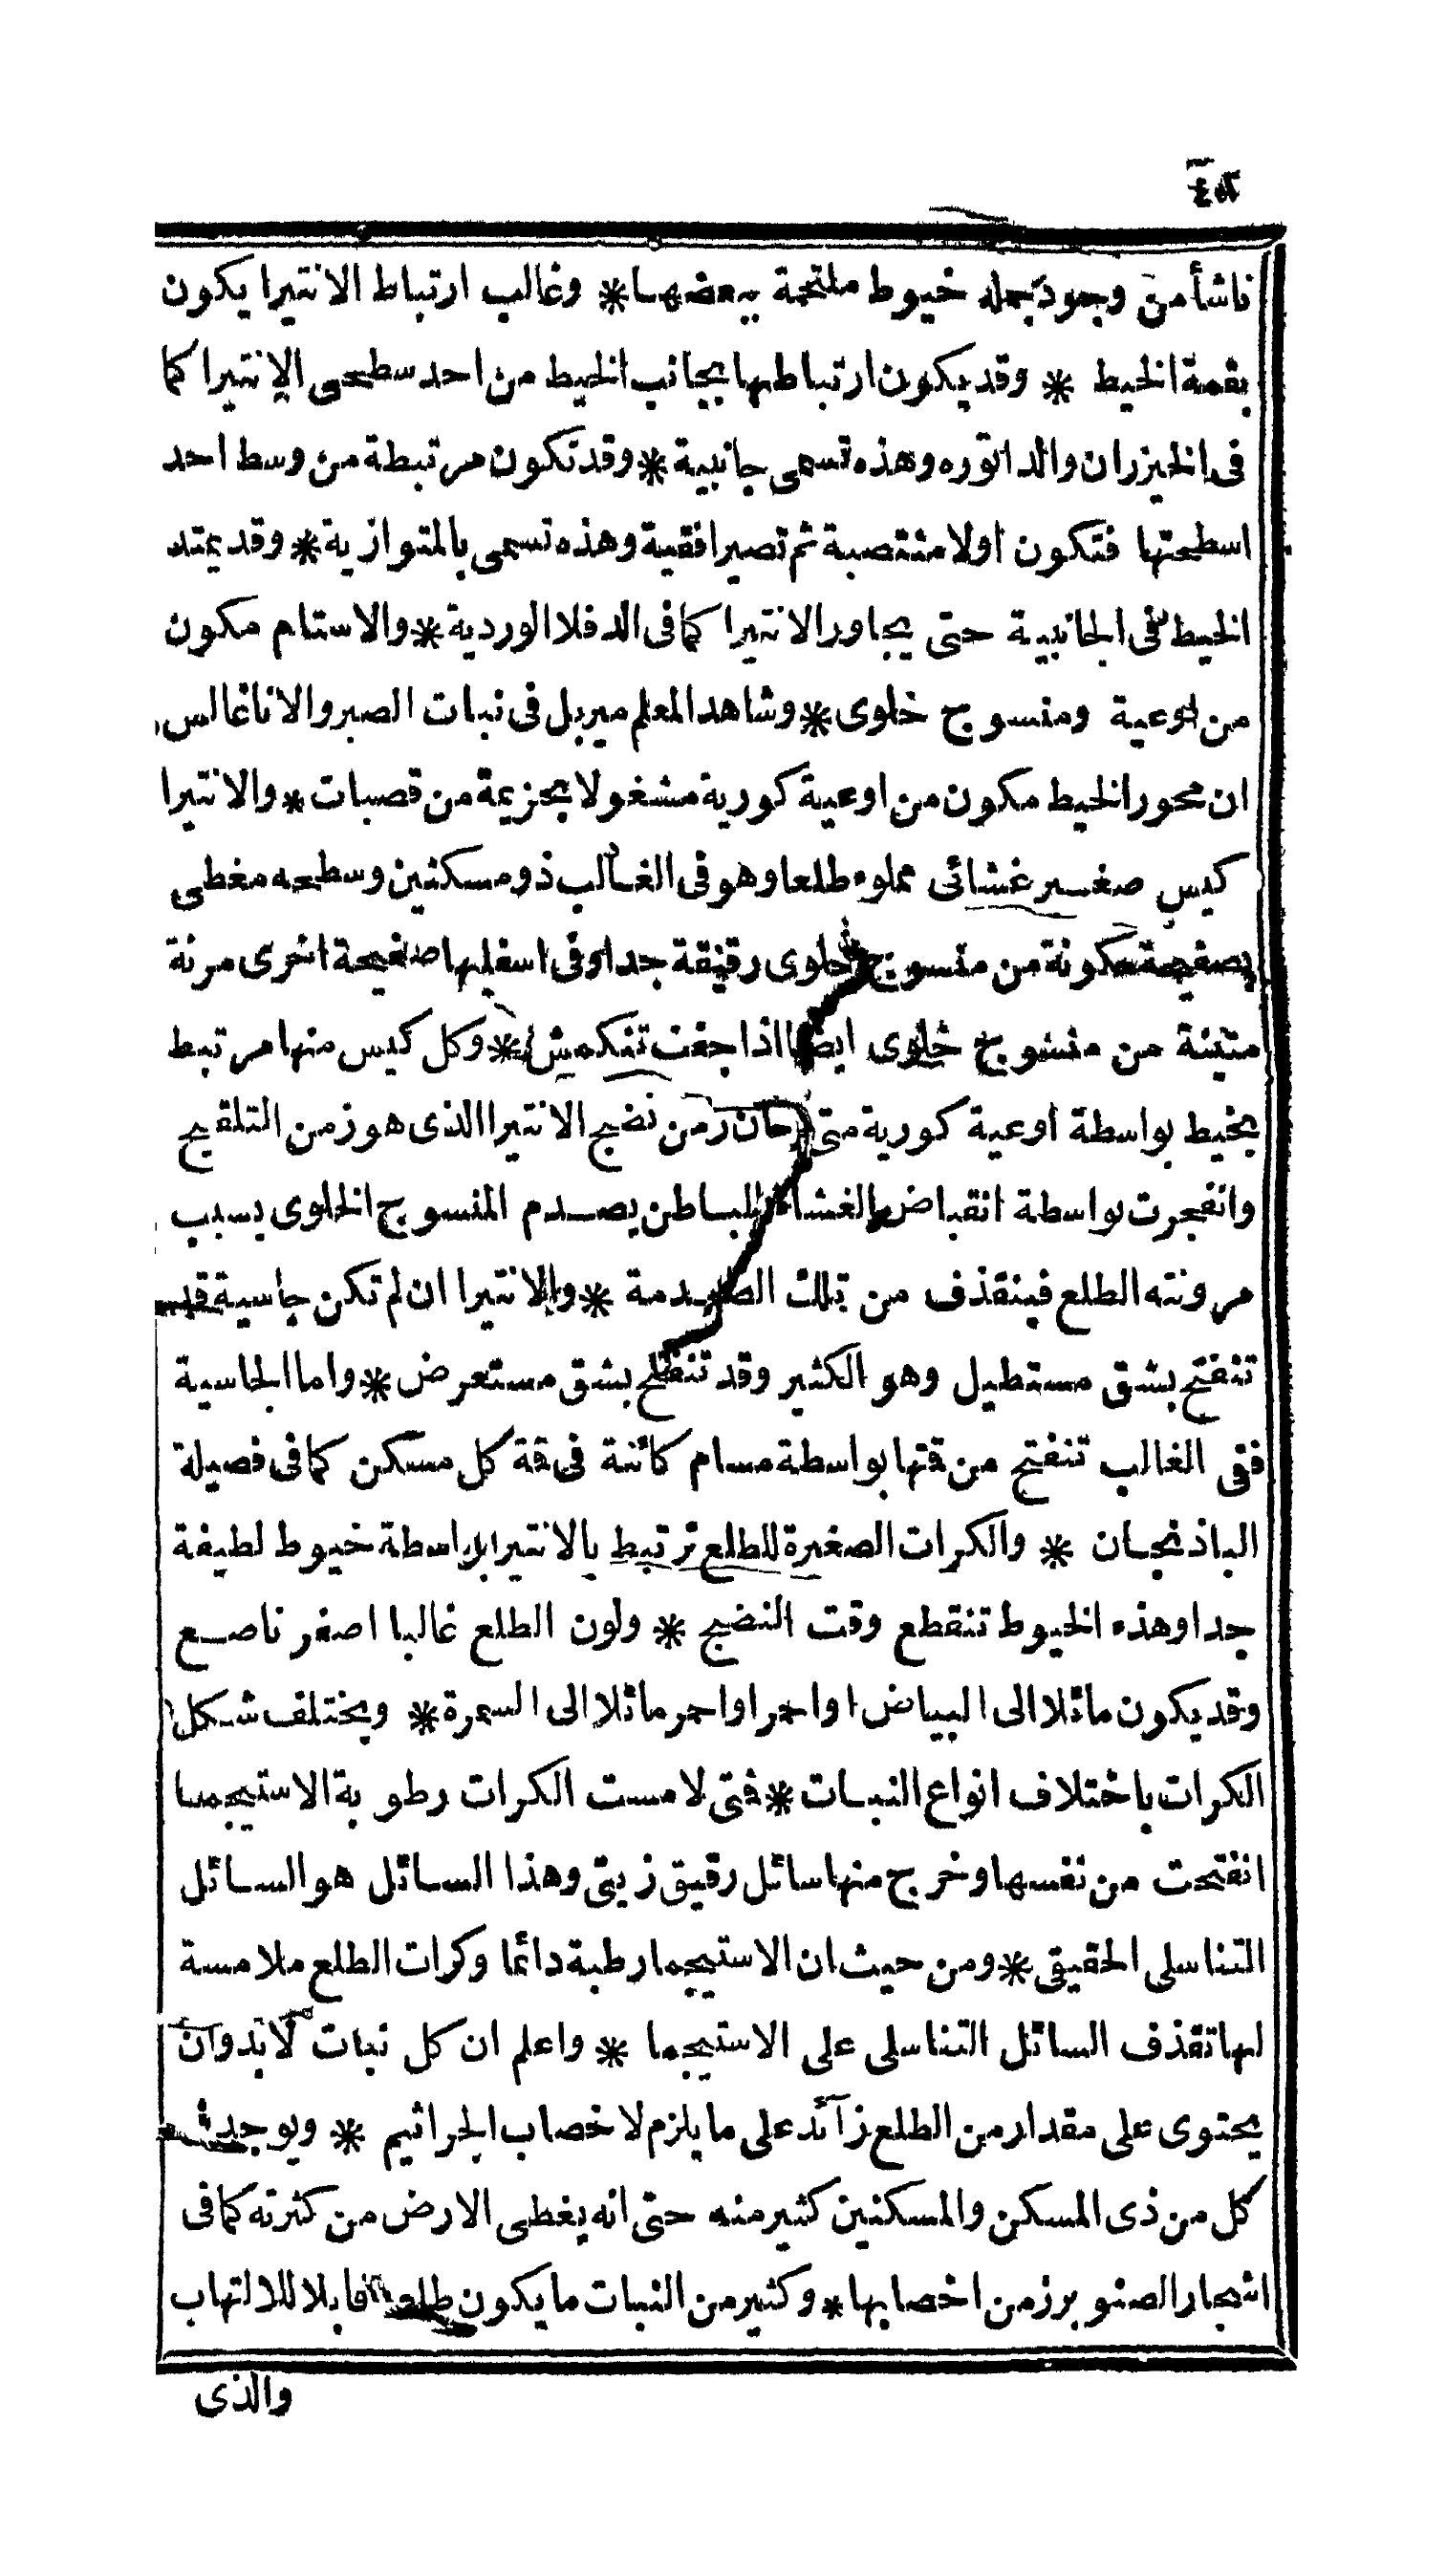 ناشأ من وجود جملة خيوط ملتحمة ببعضها * وغالب ارتباط الانتيرا يكون
بقمة الخيط * وقد يكون ارتباطها بجانب الخيط من احد سطحى الانتيرا كما
فى الخيزران والداتوره وهذه تسمى جانبية * وقد تكون مرتبطة من وسط احد
اسطحتها فتكون اولا منتصبة ثم تصير افقية وهذه تسمى بالمتوازية * وقد يمتد
الخيط فى الجانبية حتى يجاور الانتيرا كما فى الدفلا الوردية * والاستام مكون
من اوعية ومنسوج خلوى * وشاهد المعلم ميربل فى نبات الصبر والاناغالس
ان محور الخيط مكون من اوعية كورية مشغولا بحزيمة من قصبات * والانتيرا
كيس صغير غشائى مملوء طلعا وهو فى الغالب ذو مسكنين وسطحه مغطى
بصفيحة مكونة من منسوج خلوى رقيقة جدا وفى اسفلها صفيحة اخرى مرنة
متينة من منسوج خلوى ايضا اذا جفت تنكمش * وكل كيس منها مرتبط
بخيط بواسطة اوعية كورية متى حان زمن نضج الانتيرا الذى هو زمن التلقيح
وانفجرت بواسطة انقباض الغشاء الباطن يصدم المنسوج الخلوى بسبب
مرونته الطلع فينقذف من تلك الصدمة * والانتيرا ان لم تكن جاسية قد
تنفتح بشق مستطيل وهو الكثير وقد تنفتح بشق مستعرض * واما الجاسية
ففى الغالب تنفتح من قمتها بواسطة مسام كائنة فى قمة كل مسكن كما فى فصيلة
الباذنجان * والكرات الصغيرة للطلع ترتبط بالانتيرا بواسطة خيوط لطيفة
جدا وهذه الخيوط تنقطع وقت النضج * ولون الطلع غالبا اصفر ناصع
وقد يكون مائلا الى البياض او احمر او احمر مائلا الى السمرة * ويختلف شكل
الكرات باختلاف انواع النبات * فمتى لامست الكرات رطوبة الاستيجما
انفتحت من نفسها وخرج منها سائل رقيق زيتى وهذا السائل هو السائل
التناسلى الحقيقى * ومن حيث ان الاستيجما رطبة دائما وكرات الطلع ملامسة
لها تقذف السائل التناسلى على الاستيجما * واعلم ان كل نبات لابد وان
يحتوى على مقدار من الطلع زائد على ما يلزم لاخصاب الجراثيم * ويوجد
كل من ذى المسكن والمسكنين كثير منه حتى انه يغطى الارض من كثرته كما فى
اشجار الصنوبر زمن اخصابها * وكثير من النبات ما يكون طلعه قابلا للالتهاب
والذى